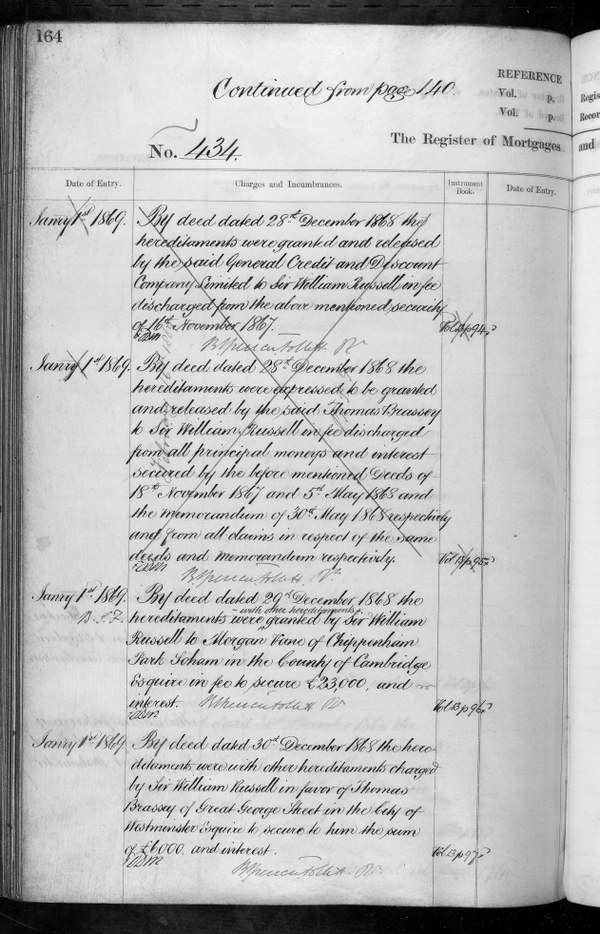 164
Continued from page 140.
REFERENCE
Vol. p.
Vol. p.
Regis
Recor
No. 434.
The Register of Mortgages
and
Date of Entry.
Charges and Incumbrances.
Instrument Book.
Date of Entry.
Janry 1st 1869.
By deed dated 28th December 1868 the
hereditaments were granted and released
by the said General Credit and Discount
Company Limited to Sir William Russell in fee
discharged from the above mentioned security
of 16th November 1867.
Vol 13 p 94.
Janry 1st 1869.
By deed dated 28th December 1868 the
hereditaments were expressed to be granted
and released by the said Thomas Brassey
to Sir William Russell in fee discharged
from all principal moneys and interest
secured by the before mentioned Deeds of
18th November 1867 and 5th May 1868 and
the memorandum of 30th May 1868 respectively
and from all claims in respect of the same
deeds and memorandum respectively.
Vol 13 p 95.
Janry 1st 1869.
By deed dated 29th December 1868 the
- with other hereditaments
hereditaments were granted by Sir William
Russell to Morgan Vane of Chippenham
Park Soham in the County of Cambridge
Esquire in fee to secure £23,000, and
interest.
Vol 13 p 96.
Janry 1st 1869
By deed dated 30th December 1868 the here-
ditaments were with other hereditaments charged
by Sir William Russell in favor of Thomas
Brassey of Great George Street in the City of
Westminster Esquire to secure to him the sum
of £6000, and interest.
Vol 13 p 97.